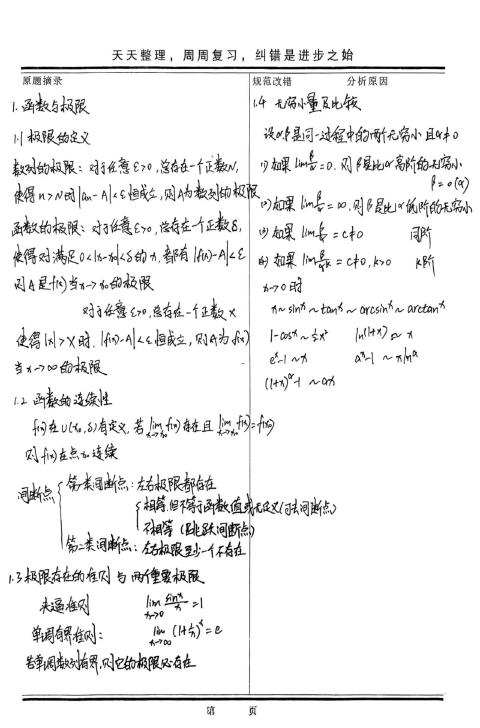 天天整理，周周复习，纠错是进步之始
原题摘录
1. 函数与极限
1.1 极限的定义
数列的极限：对于任意 ε>0, 总存在一个正数N,
使得 n>N时 |an-A|<ε 恒成立, 则A为数列的极限
函数的极限：对于任意 ε>0, 总存在一个正数 δ,
使得对满足 0<|x-x₀|<δ 的 x, 都有 |f(x)-A|<ε
则 A 是 f(x) 当 x→x₀ 的极限
对于任意 ε>0, 总存在一个正数 X
使得 |x|>X 时, |f(x)-A|<ε 恒成立, 则A为 f(x)
当 x→∞ 的极限
1.2 函数的连续性
f(x) 在 U(x₀,δ) 有定义, 若 lim x→x₀ f(x) 存在且 lim x→x₀ f(x)=f(x₀)
则 f(x) 在点 x₀ 连续
间断点
第一类间断点：左右极限都存在
相等, 但不等于函数值或无定义(可去间断点)
不相等 (跳跃间断点)
第二类间断点：左右极限至少一个不存在
1.3 极限存在的准则与两个重要极限
夹逼准则 lim x→0 sinx/x =1
单调有界准则： lim x→∞ (1+1/x)^x = e
若单调数列有界, 则它的极限必存在
规范改错 分析原因
1.4 无穷小量及比较
设 α,β 是同一过程中的两个无穷小 且 α≠0
(1) 如果 lim β/α =0, 则 β是比α高阶的无穷小
β=o(α)
(2) 如果 lim β/α =∞, 则 β是比α低阶的无穷小
(3) 如果 lim β/α = c≠0 同阶
(4) 如果 lim β/α^k = c≠0, k>0 k阶
x→0 时
x ~ sinx ~ tanx ~ arcsinx ~ arctanx
1-cosx ~ ½x² ln(1+x) ~ x
e^x-1 ~ x a^x-1 ~ xlna
(1+x)^α-1 ~ αx
第 页